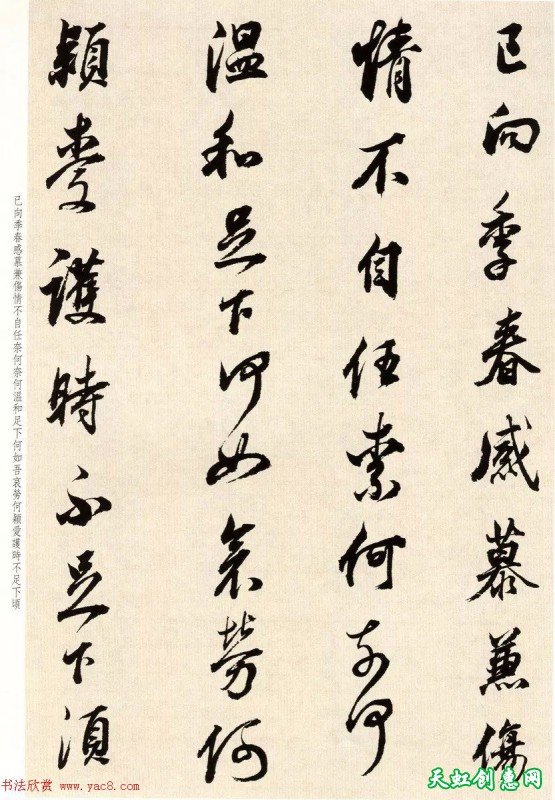 已向季春感慕兼傷
情不自任柰何奈何
溫和足下何如哀勞何
穎愛護時不足下湏
已向季春感慕兼傷情不自任奈何奈何溫和足下何如吾哀勞何穎愛護時不足下頃
书法欣赏 www.yac8.com
天虹创意网